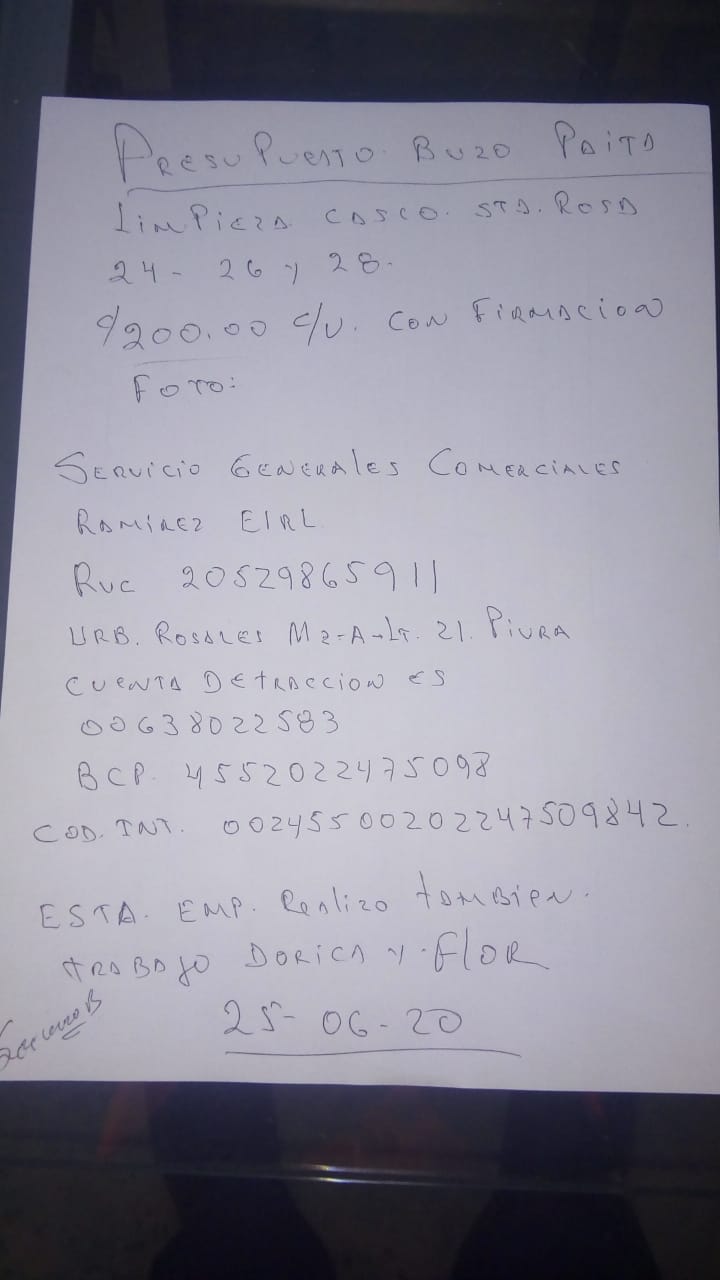 PRESUPUESTO. BUZO PAITA
LIMPIEZA CASCO. STA. ROSA
24 - 26 y 28.
$/200.00 c/u. CON FIRMACION
FOTO:
SERVICIO GENERALES COMERCIALES
RAMIREZ EIRL
RUC 20529865911
URB. ROSALES MZ-A-LT. 21. PIURA
CUENTA DETRACCION ES
00638022583
BCP. 4552022475098
COD. INT. 00245500202247509842.
ESTA. EMP. Realizo TAMBIEN.
TRABAJO DORICA Y. FLOR
25-06-20